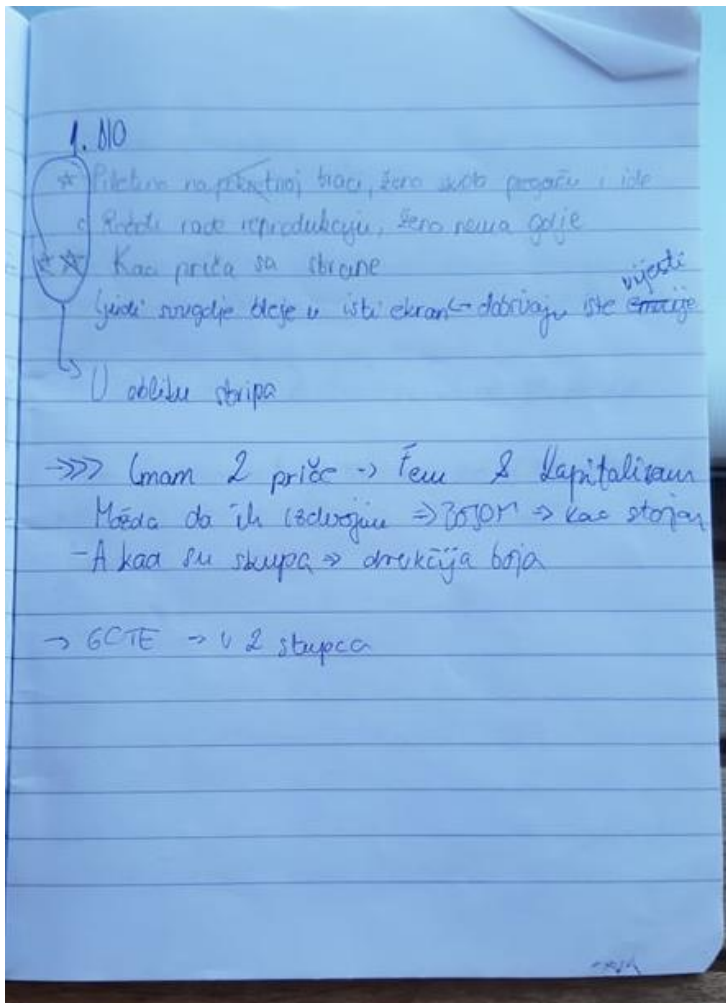 1. DIO
☆ Piletina na pokretnoj traci, žena skida pregaču i ide
rade reprodukciju, žena nema gdje
☆☆ Kao priča sa strane
vijesti
Ljudi svugdje bleje u isti ekran ↔ dobivaju iste emocije
→ U obliku stripa
→>> Imam 2 priče → Fem & Kapitalizam
Možda da ih izdvojim ⇒ BOJOM ⇒ kao
- A kad su skupa ⇒ drukčija boja
→ → u 2 stupca